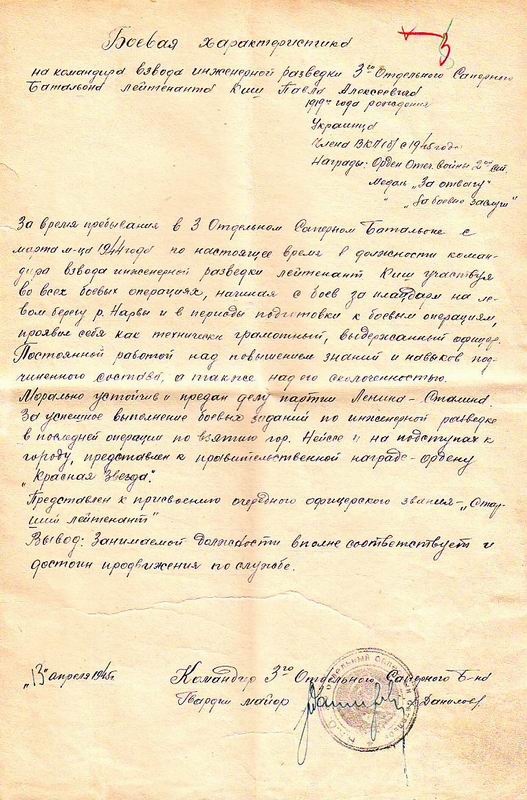 Боевая характеристика
3
на командира взвода инженерной разведки 3го Отдельного Саперного
Батальона лейтенанта Киш Павла Алексеевича
1919го года рождения
Украинца
Члена ВКП(б) с 1945 года
Награды: Орден Отеч. войны 2ой ст.
Медаль „За отвагу"
" „За боевые заслуги"
За время пребывания в 3 Отдельном Саперном Батальоне с
марта м-ца 1944 года по настоящее время в должности коман-
дира взвода инженерной разведки лейтенант Киш участвуя
во всех боевых операциях, начиная с боев за плацдарм на ле-
вом берегу р. Нарвы и в периоды подготовки к боевым операциям,
проявил себя как технически грамотный, выдержанный офицер.
Постоянной работой над повышением знаний и навыков под-
чиненного состава, а также над его сколоченностью.
Морально устойчив и предан делу партии Ленина-Сталина.
За успешное выполнение боевых заданий по инженерной разведке
в последней операции по взятию гор. Нейссе и на подступах к
городу, представлен к правительственной награде- ордену
„Красная Звезда".
Представлен к присвоению очередного офицерского звания- „Стар-
ший лейтенант"
Вывод: Занимаемой должности вполне соответствует и
достоин продвижения по службе.
„13" апреля 1945г.
Командир 3го Отдельного Саперного Б-на
Гвардии майор Данилов